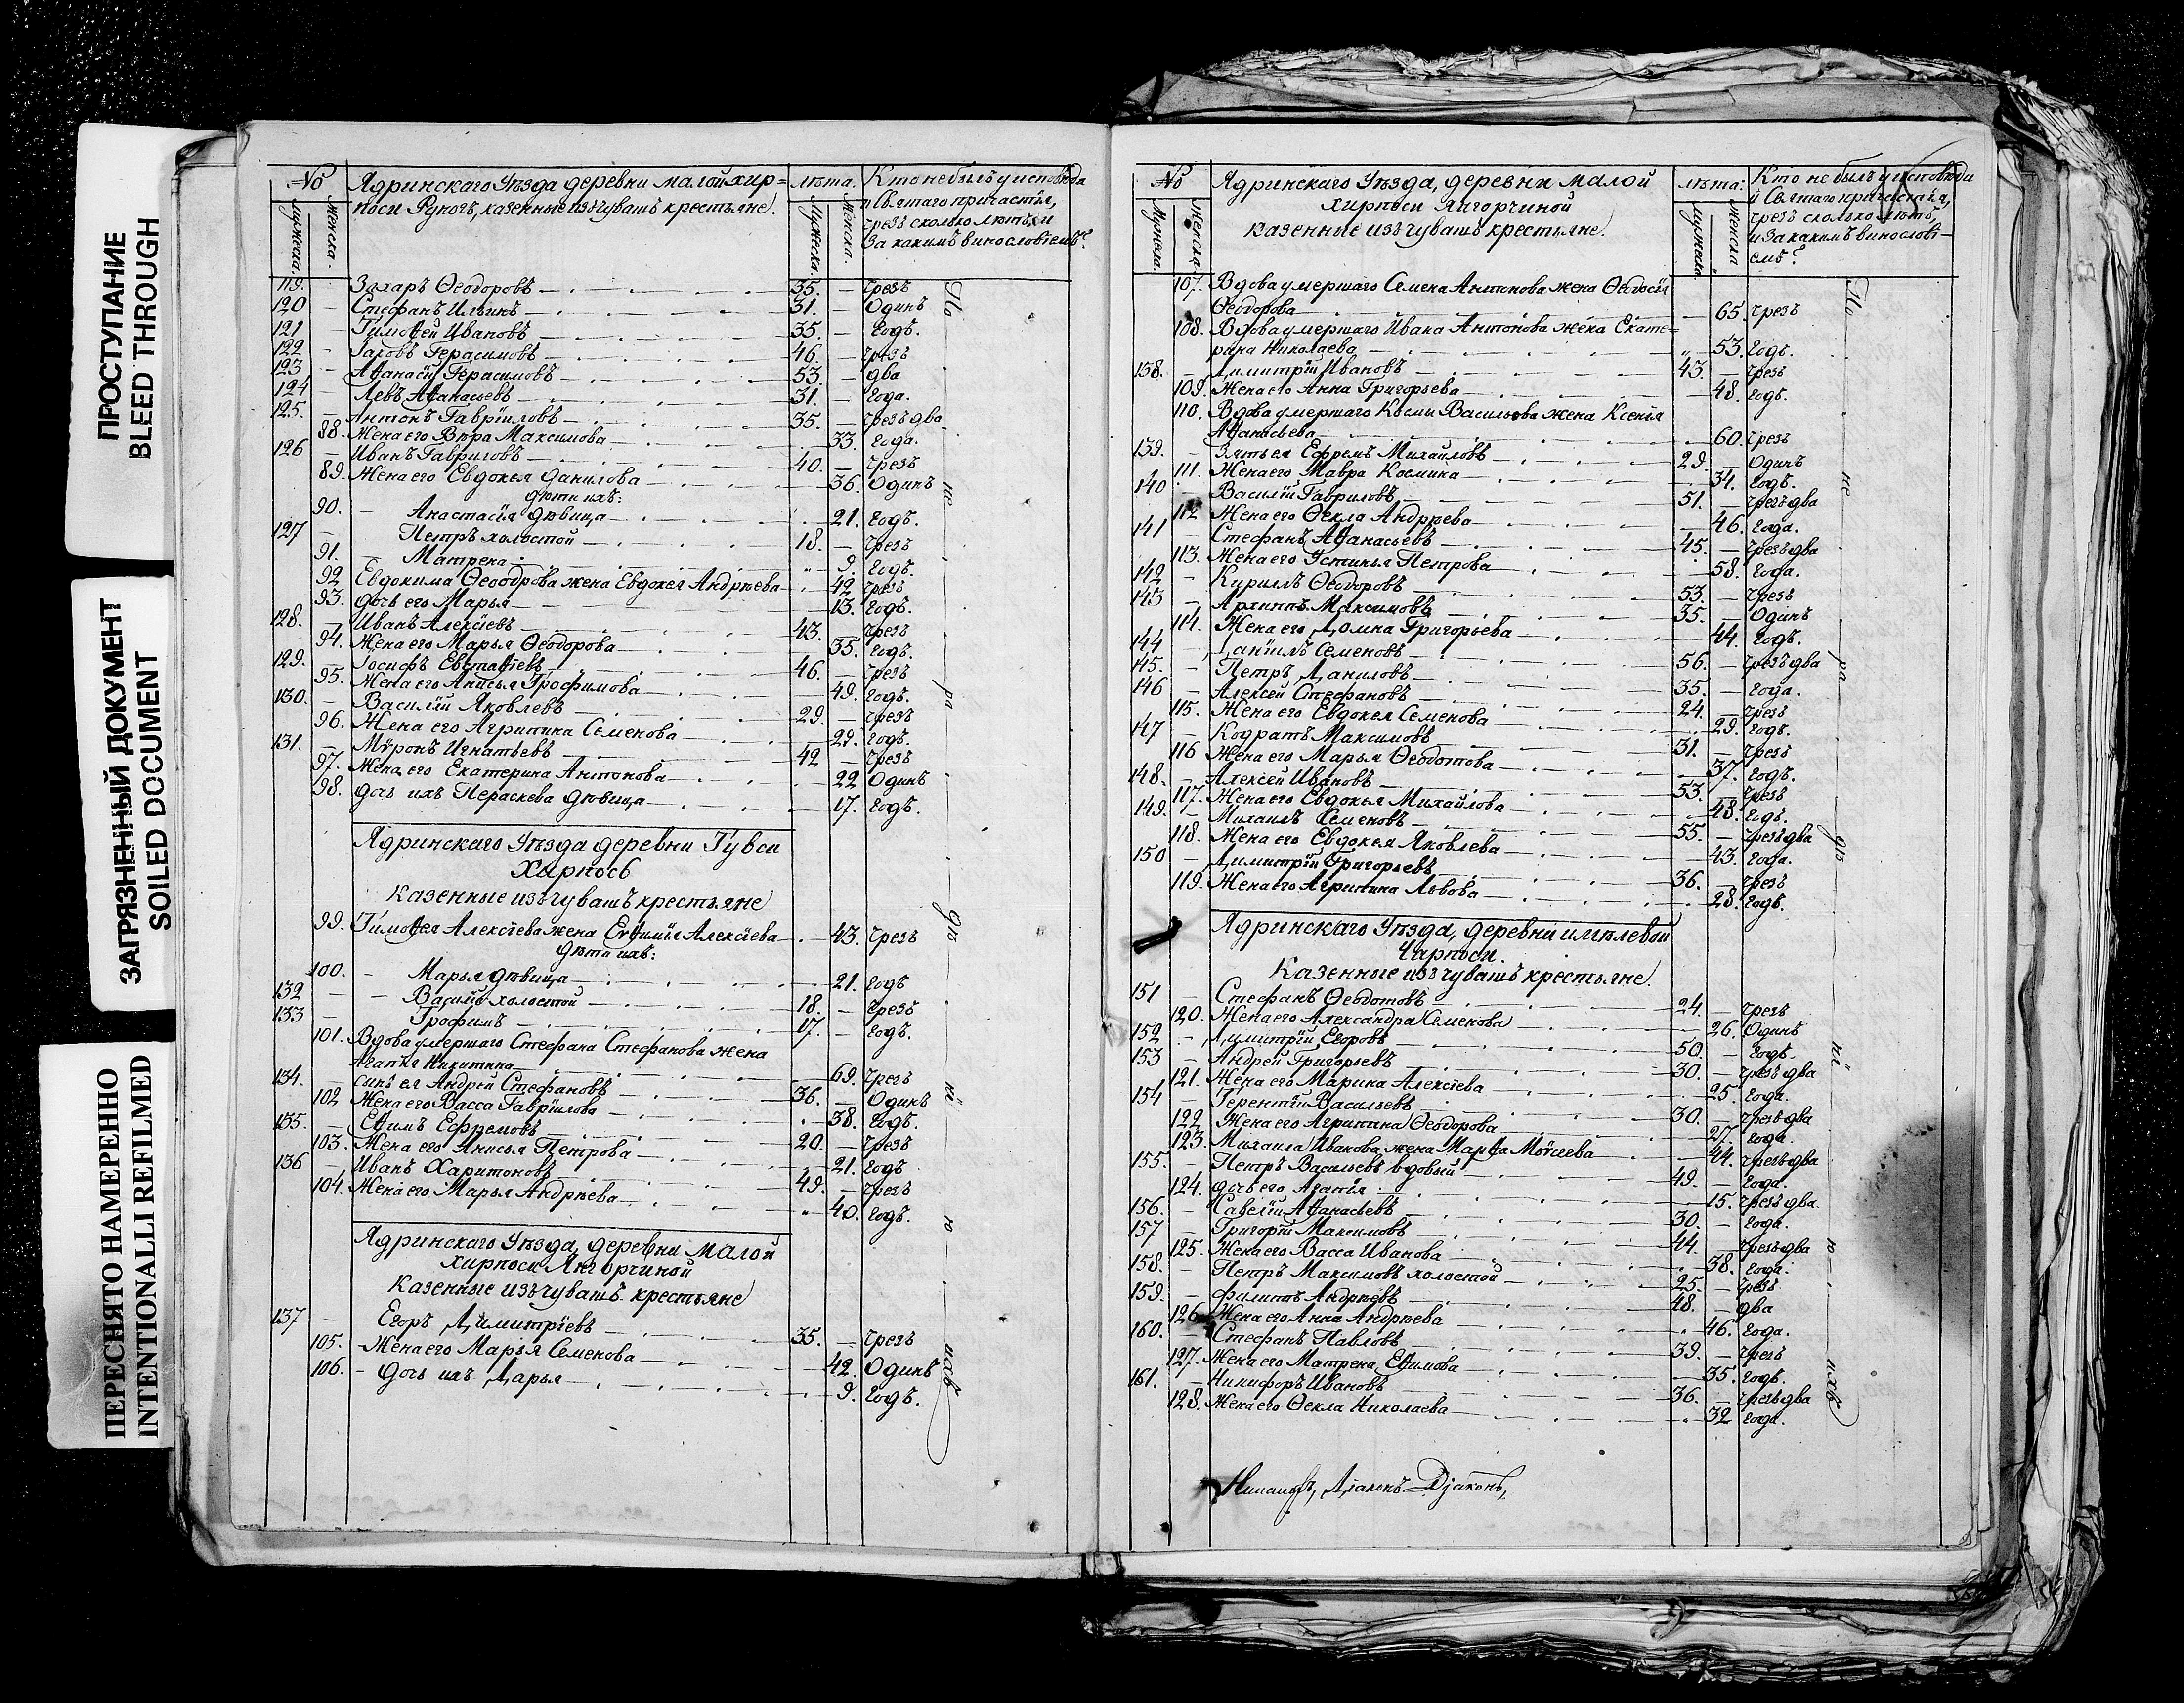 ПРОСТУПАНИЕ
BLEED THROUGH
ЗАГРЯЗНЕННЫЙ ДОКУМЕНТ
SOILED DOCUMENT
ПЕРЕСНЯТО НАМЕРЕННО
INTENTIONALLI REFILMED
№ Ядринскаго Уѣзда деревни малой хир= лѣта. Кто не былъ у исповѣди
поси Рункъ, казенные изъ чувашъ крестьяне. и святаго причастія,
чрезъ сколько лѣтъ, и
за какимъ винословіемъ?
Мужеска. Женска. Мужеска. Женска.
119. – Захаръ Ѳеодоровъ 35. – чрезъ
120 – Стефанъ Ильинъ 31. – Одинъ
121 – Тимоѳей Ивановъ 35. – годъ.
122 – Іаковъ Герасимовъ 46. – чрезъ
123 – Аѳанасій Герасимовъ 53. – два
124 – Левъ Аѳанасьевъ 31. – года.
125. – Антонъ Гавріиловъ 35. – чрезъ два
88. Жена его Вѣра Максимова 33. года.
126 – Иванъ Гавриловъ 40. – чрезъ
89. Жена его Евдокея Данилова 36. Одинъ
дѣти ихъ:
90. – Анастасія дѣвица 21. годъ.
127 – Петръ холостой 18. – чрезъ
91. – Матрена 9. годъ.
92 Евдокима Ѳеодорова жена Евдокея Андрѣева 42 чрезъ
93. дочь его Марья 13. годъ.
128. – Иванъ Алексіевъ 43. – чрезъ
94. Жена его Марья Ѳеодорова 35. годъ.
129. – Іосифъ Евстаѳіевъ 46. – чрезъ
95. Жена его Анисья Трофимова 49. годъ.
130. – Василій Яковлевъ 29. – чрезъ
96. Жена его Агрипина Семенова 29. годъ.
131. – Мѵронъ Игнатьевъ 42 – чрезъ
97. Жена его Екатерина Антонова 22 Одинъ
98. дочь ихъ Пераскева дѣвица 17. годъ.
Ядринскаго Уѣзда деревни Тувси
Хирпось
казенные изъ чувашъ крестьяне
99. Тимоѳея Алексіева жена Евѳимія Алексіева 43. чрезъ
Дѣти ихъ:
100. – Марья дѣвица 21. годъ
132 – – Василій холостой 18. – чрезъ
133 – Трофимъ 17. – годъ.
101. Вдова умершаго Стефана Стефанова жена
Агапія Никитина 69. чрезъ
134. – сынъ ея Андрей Стефановъ 36. – Одинъ
102 Жена его Васса Гавріилова 38. годъ.
135. – Еѳимъ Ефремовъ 20. – чрезъ
103. Жена его Анисья Петрова 21. годъ
136 – Иванъ Харитоновъ 49. – чрезъ
104. Жена его Марья Андрѣева 40. годъ.
Ядринскаго Уѣзда, деревни Малой
хирпоси Янгорчиной
Казенные изъ чувашъ крестьяне
137 – Егоръ Димитріевъ 35. – чрезъ
105. – Жена его Марья Семенова 42. Одинъ
106. – дочь ихъ Дарья 9. годъ.
По не ра дѣ ні ю ихъ
№ Ядринскаго Уѣзда, деревни Малой лѣта: Кто не былъ у исповѣди
хирпоси Янгорчиной и Святаго причастія,
казенные изъ чувашъ крестьяне. чрезъ сколько лѣтъ,
и за какимъ винослові–
емъ?
Мужеска. Женска. Мужеска. Женска
107. Вдова умершаго Семена Антонова жена Ѳеодосія
Ѳеодорова 65. чрезъ
108. Вдова умершаго Ивана Антонова жена Екате=
рина Николаева 53. годъ.
138. – Димитрій Ивановъ 43. – чрезъ
109. Жена его Анна Григорьева 48. годъ.
110. Вдова умершаго Косьмы Васильева жена Ксенія
Аѳанасьева 60. чрезъ
139. – Зять ея Ефремъ Михайловъ 29. – Одинъ
111. Жена его Мавра Космина 34. годъ.
140 – Василій Гавриловъ 51. – чрезъ два
112 Жена его Ѳекла Андрѣева 46. года.
141 – Стефанъ Аѳанасьевъ 45. – чрезъ два
113. Жена его Устинья Петрова 58. года.
142 – Кириллъ Ѳеодоровъ 53. – чрезъ
143 – Архиппъ Максимовъ 35. – Одинъ
114. Жена его Домна Григорьева 44. годъ.
144 – Даніилъ Семеновъ 56. – чрезъ два
145. – Петръ Даниловъ 35. – года.
146 – Алексей Стефановъ 24. – чрезъ
115. Жена его Евдокея Семенова 29. годъ.
147 – Кодратъ Максимовъ 31. – чрезъ
116 Жена его Марья Ѳеодотова 37. годъ.
148. – Алексей Ивановъ 53. – чрезъ
117. Жена его Евдокея Михайлова 48. годъ.
149. – Михаилъ Семеновъ 55. – чрезъ два
118. Жена его Евдокея Яковлева 43. года.
150 – Димитрій Григорьевъ 36. – чрезъ
119. Жена его Агрипина Львова 28. годъ.
Ядринскаго Уѣзда, деревни имѣлевой
Чарпоси.
Казенные изъ чувашъ крестьяне.
151 – Стефанъ Ѳеодотовъ 24. – чрезъ
120. Жена его Александра Семенова 26. Одинъ
152. – Димитрій Егоровъ 50. – годъ.
153 – Андрей Григорьевъ 30. – чрезъ два
121. Жена его Марина Алексіева 25. года.
154 – Терентій Васильевъ 30. – чрезъ два
122 Жена его Агрипина Ѳеодорова 27. года.
123. Михаила Иванова жена Марѳа Моѵсеева 44. чрезъ два
155. – Петръ Васильевъ вдовый 49. – года.
124. дочь его Агапія 15. чрезъ два
156. – Савелій Аѳанасьевъ 30. – года.
157 – Григорій Максимовъ 44. – чрезъ два
125. Жена его Васса Иванова 38. года.
158. – Петръ Максимовъ холостой 25. – чрезъ
159. – Филиппъ Андрѣевъ 48. – два
126 Жена его Анна Андрѣева 46. года.
160. – Стефанъ Павловъ 39. – чрезъ
127. Жена его Матрена Еѳимова 35. годъ.
161. – Никифоръ Ивановъ 36. – чрезъ два
128. Жена его Ѳекла Николаева 32 года.
По не ра дѣ ні ю ихъ
Діаконъ